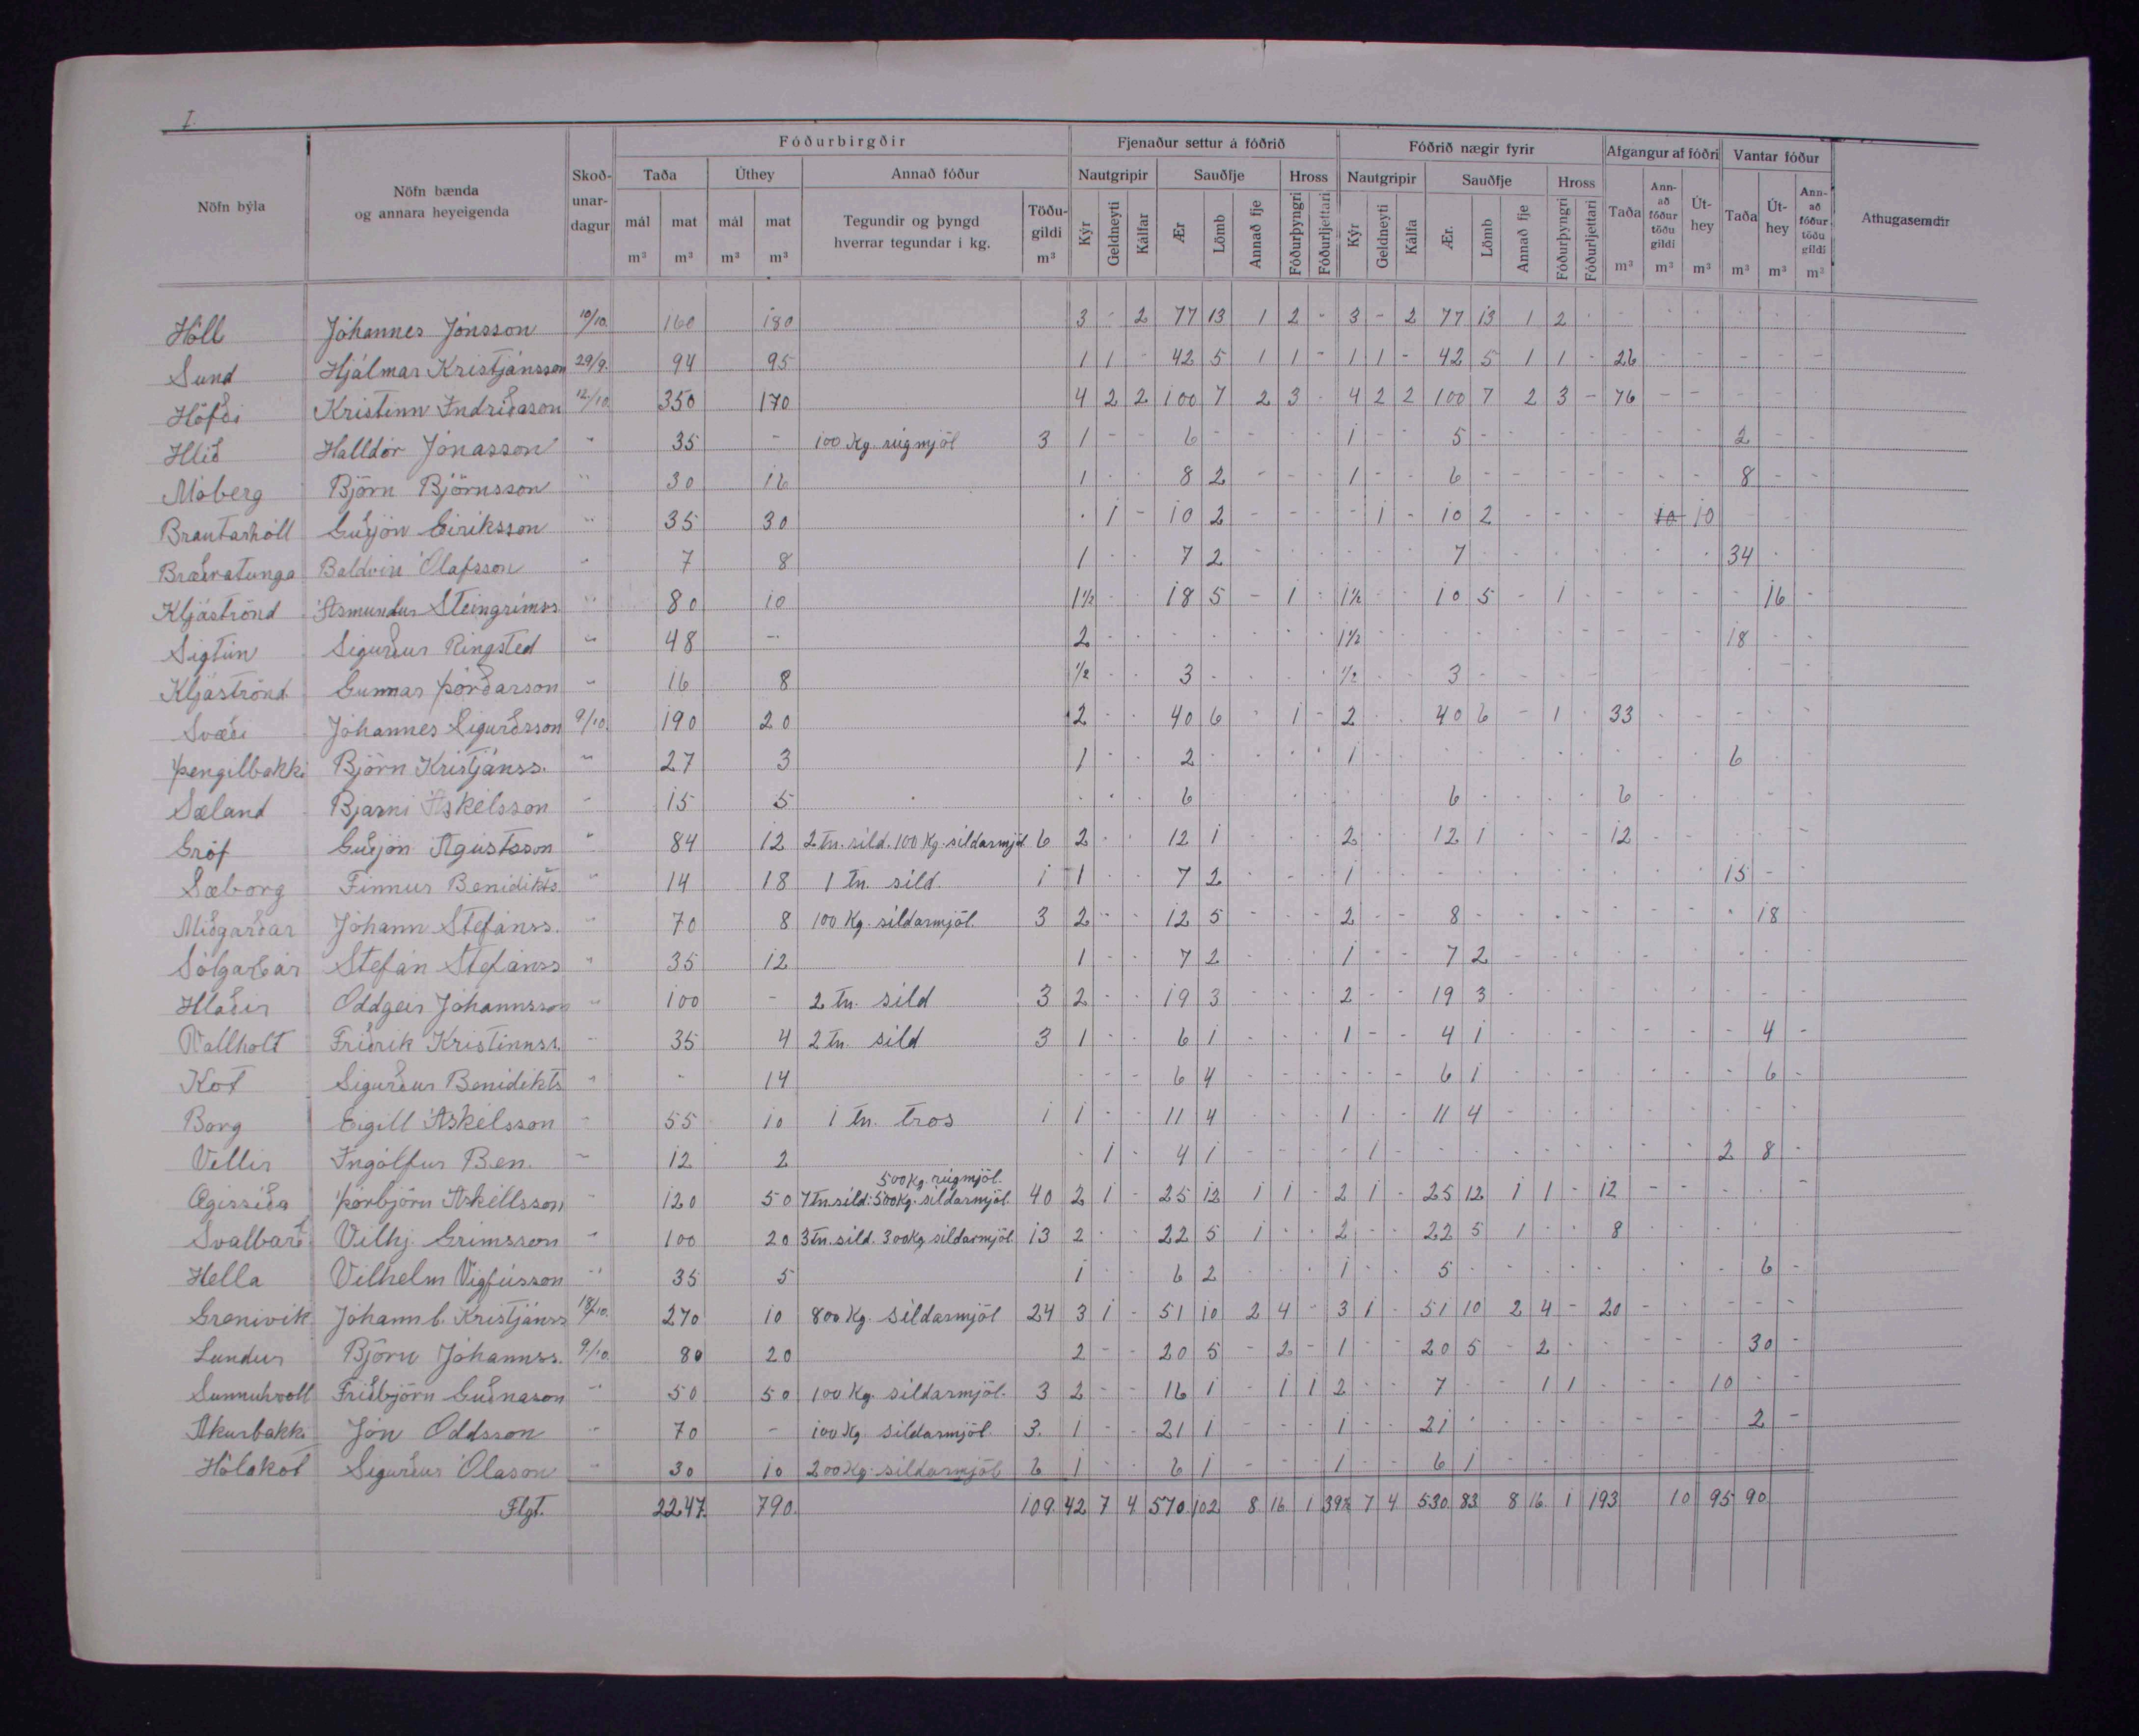 I.
Nöfn býla | Nöfn bænda og annara heyeigenda | Skoð-unar-dagur | Fóðurbirgðir | Fjenaður settur á fóðrið | Fóðrið nægir fyrir | Afgangur af fóðri | Vantar fóður | Athugasemdir
Taða | Úthey | Annað fóður | Nautgripir | Sauðfje | Hross | Nautgripir | Sauðfje | Hross | Taða | Ann-að fóður töðu gildi | Út-hey | Taða | Út-hey | Ann-að fóður töðu gildi
mál m³ | mat m³ | mál m³ | mat m³ | Tegundir og þyngd hverrar tegundar í kg. | Töðu-gildi m³ | Kýr | Geldneyti | Kálfar | Ær | Lömb | Annað fje | Fóðurþyngri | Fóðurljettari | Kýr | Geldneyti | Kálfa | Ær. | Lömb | Annað fje | Fóðurþyngri | Fóðurljettari | m³ | m³ | m³ | m³ | m³ | m³
Hóll Jóhannes Jónsson 10/10. 160 180 3 - 2 77 13 1 2 - 3 - 2 77 13 1 2 -
Sund Hjálmar Kristjánsson 29/9. 94 95 1 1 - 42 5 1 1 - 1 1 - 42 5 1 1 - 26 - - - - -
Höfði Kristinn Indriðason 12/10. 350 170 4 2 2 100 7 2 3 - 4 2 2 100 7 2 3 - 76 - -
Hlíð Halldór Jónasson " 35 - 100 Kg. rúgmjöl 3 1 - - 6 - - - - 1 - - 5 - - - - - - - 2 - -
Móberg Björn Björnsson " 30 16 1 - - 8 2 - - - 1 - - 6 - - - - - - - 8 - -
Brautarhóll Guðjón Eiríksson " 35 30 - 1 - 10 2 - - - - 1 - 10 2 - - - - 10 10
Bræðratunga Baldvin Ólafsson " 7 8 1 - - 7 2 - - - - - - 7 - - - - - - - 34 - -
Kljáströnd Ásmundur Steingrímss " 80 10 1½ - - 18 5 - 1 - 1½ - - 10 5 - 1 - - - - - 16 -
Sigtún Sigurður Ringsted " 48 - 2 - - - - - - - 1½ - - - - - - - - - - 18 - -
Kljáströnd Gunnar Þórðarson " 16 8 ½ - - 3 - - - - ½ - - 3 - - - -
Svæði Jóhannes Sigurðsson 9/10. 190 20 2 - - 40 6 - 1 - 2 - - 40 6 - 1 - 33 - - - - -
Þengilbakki Björn Kristjánss. " 27 3 1 - - 2 - - - - 1 - - - - - - - - - - 6 - -
Sæland Bjarni Áskelsson " 15 5 - - - 6 - - - - - - - 6 - - - - 6 - - - - -
Gróf Guðjón Ágústsson " 84 12 2 tn. síld. 100 Kg. síldarmjöl 6 2 - - 12 1 - - - 2 - - 12 1 - - - 12 - - - - -
Sæborg Finnur Benidikts. " 14 18 1 tn. síld. 1 1 - - 7 2 - - - 1 - - - - - - - - - - 15 - -
Miðgarðar Jóhann Stefánss. " 70 8 100 Kg. síldarmjöl. 3 2 - - 12 5 - - - 2 - - 8 - - - - - - - - 18 -
Sólgarðar Stefán Stefánss " 35 12 1 - - 7 2 - - - 1 - - 7 2 - - -
Hlaðir Oddgeir Jóhannsson " 100 - 2 tn. síld 3 2 - - 19 3 - - - 2 - - 19 3 - - -
Vallholt Friðrik Kristinnss. " 35 4 2 tn. síld 3 1 - - 6 1 - - - 1 - - 4 1 - - - - - - - 4 -
Kot Sigurður Benidikts " - 14 - - - 6 4 - - - - - - 6 1 - - - - - - - 6 -
Borg Eigill Áskelsson " 55 10 1 tn. tros 1 1 - - 11 4 - - - 1 - - 11 4 - - -
Vellir Ingólfur Ben. " 12 2 - 1 - 4 1 - - - - 1 - - - - - - - - - 2 8 -
500 Kg. rúgmjöl.
Ægissíða Þorbjörn Áskellsson " 120 50 7 tn. síld: 500 Kg. síldarmjöl. 40 2 1 - 25 12 1 1 - 2 1 - 25 12 1 1 - 12 - - - - -
Svalbarð Vilhj. Grímsson " 100 20 3 tn. síld. 300 Kg síldarmjöl. 13 2 - - 22 5 1 - - 2 - - 22 5 1 - - 8 - - - - -
Hella Vilhelm Vigfússon " 35 5 1 - - 6 2 - - - 1 - - 5 - - - - - - - - 6 -
Grenivík Jóhann b. Kristjánss 18/10. 270 10 800 Kg. síldarmjöl 24 3 1 - 51 10 2 4 - 3 1 - 51 10 2 4 - 20 - - - - -
Lundur Björn Jóhannss. 9/10. 80 20 2 - - 20 5 - 2 - 1 - - 20 5 - 2 - - - - - 30 -
Sunnuhvoll Friðbjörn Guðnason " 50 50 100 Kg. síldarmjöl. 3 2 - - 16 1 - 1 1 2 - - 7 - - 1 1 - - 10 - - -
Akurbakki Jón Oddsson " 70 - 100 Kg. síldarmjöl. 3. 1 - - 21 1 - - - 1 - - 21 - - - - - - - - 2 -
Hólakot Sigurður Ólason " 30 10 200 Kg. síldarmjöl 6 1 - - 6 1 - - - 1 - - 6 1 - - -
Flgt. 2247. 790. 109. 42 7 4 570 102 8 16 1 39½ 7 4 530 83 8 16 1 193 10 95 90